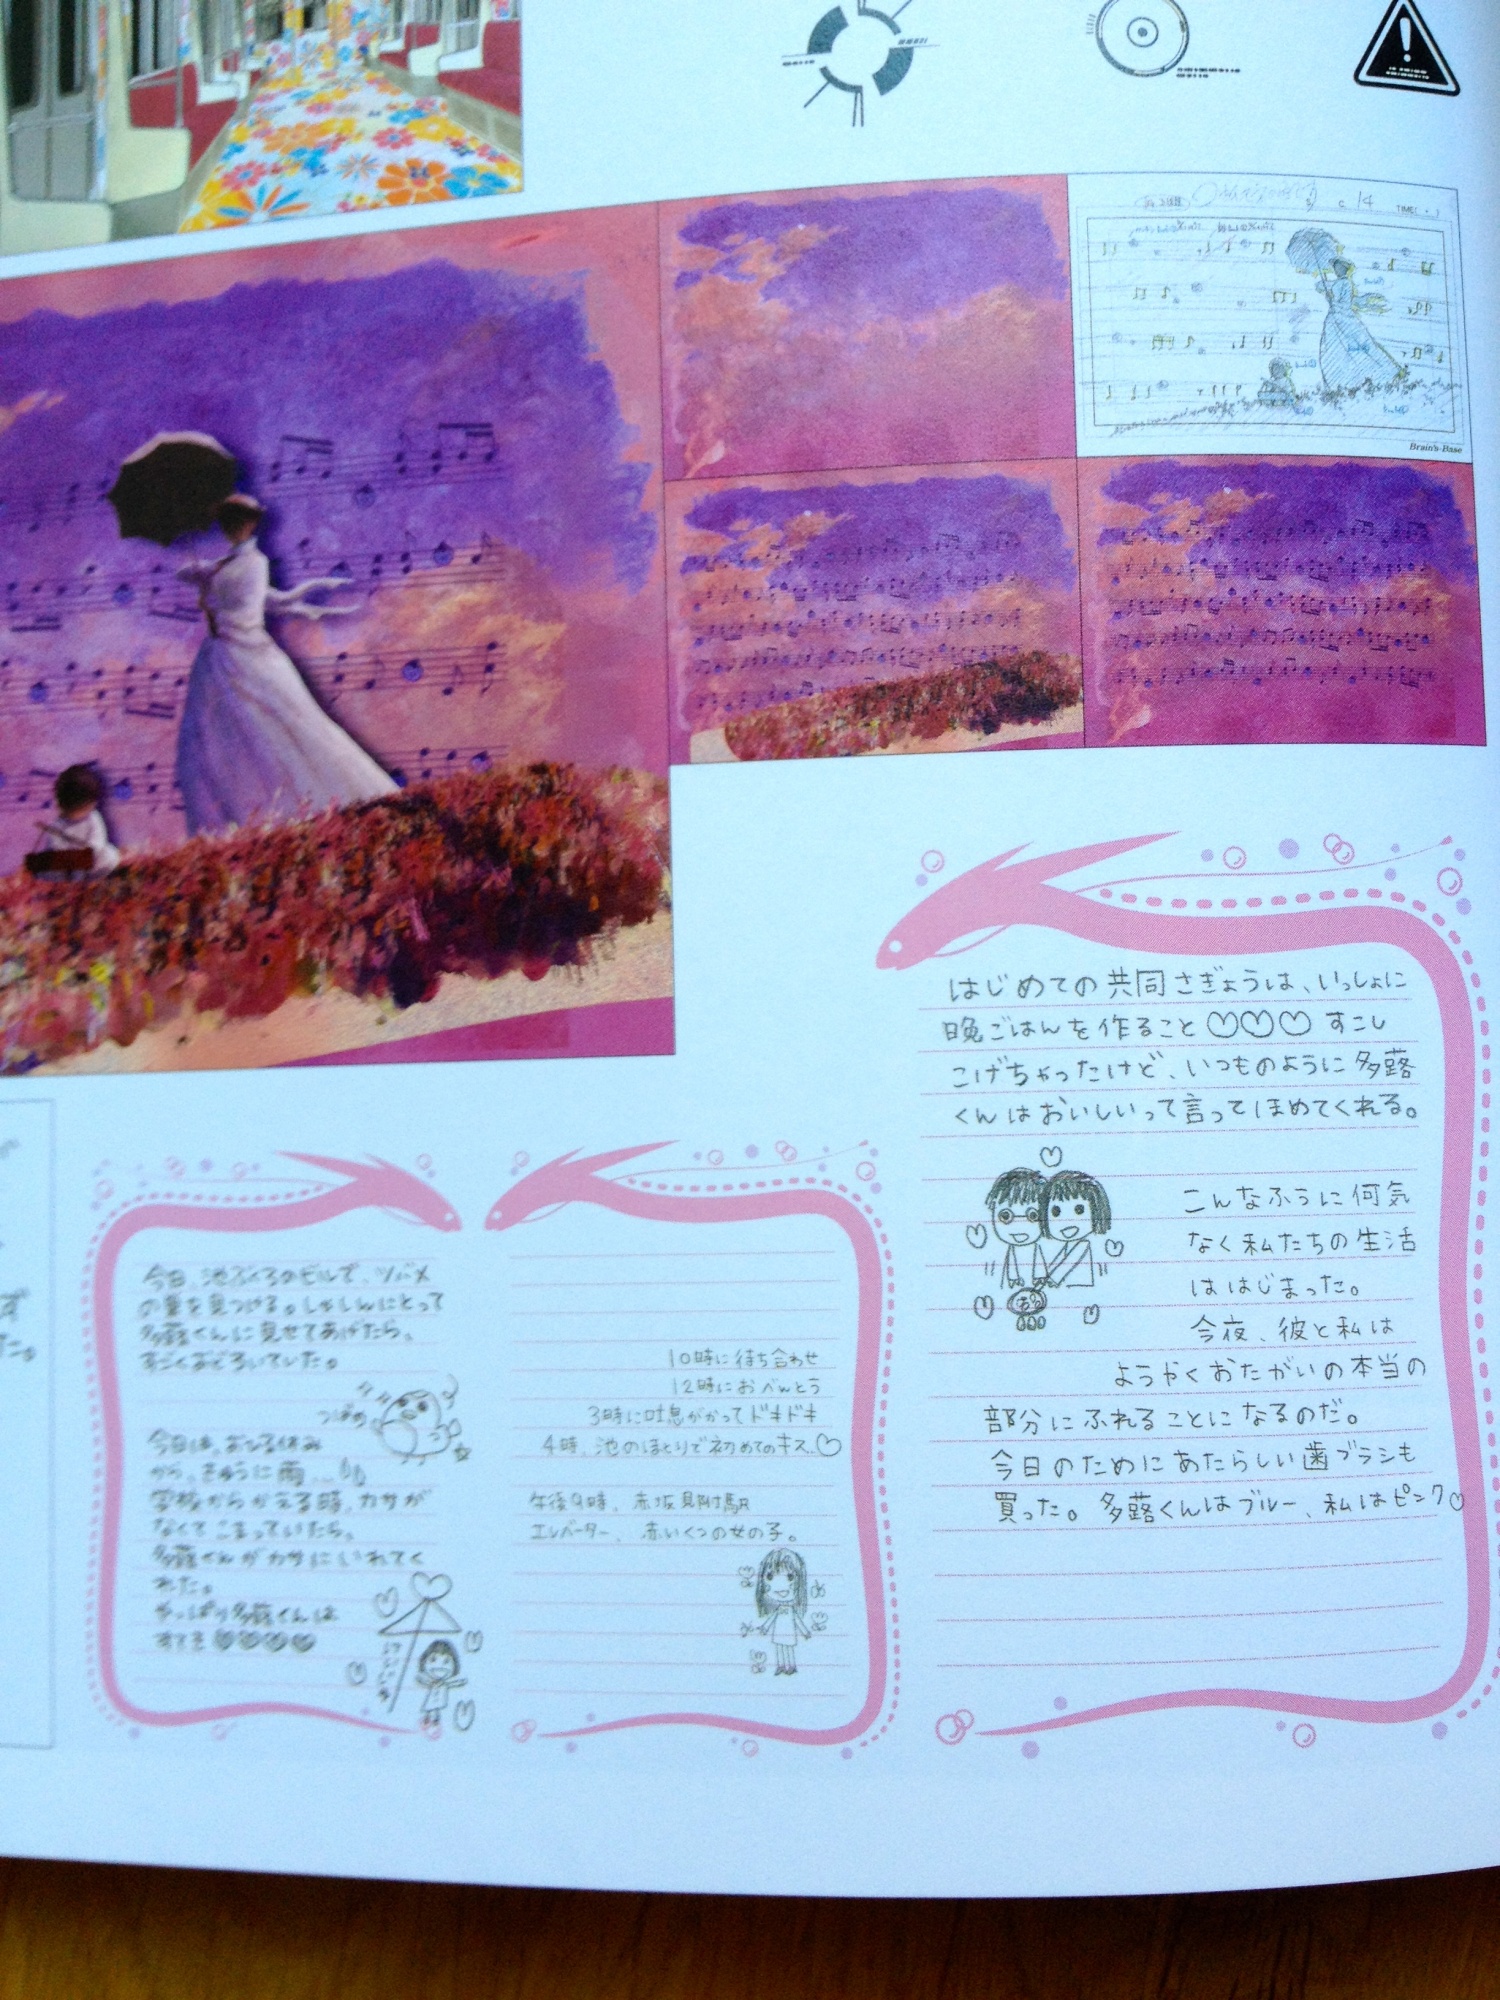 c 14
TIME( + )
Brain's-Base
はじめての共同さぎょうは、いっしょに
晩ごはんを作ること♡♡♡ すこし
こげちゃったけど、いつものように多蕗
くんはおいしいって言ってほめてくれる。
こんなふうに何気
なく私たちの生活
ははじまった。
今夜、彼と私は
ようやくおたがいの本当の
部分にふれることになるのだ。
今日のためにあたらしい歯ブラシも
買った。多蕗くんはブルー、私はピンク♡
今日、池ぶくろのビルで、ツバメ
の巣を見つける。しゃしんにとって
多蕗くんに見せてあげたら、
すごくおどろいていた。
つばめ
今日は、おひる休み
から、きゅうに雨
学校からかえる時、カサが
なくてこまっていたら、
多蕗くんがカサにいれてく
れた。
やっぱり多蕗くんは
すてき♥♥♥♥
10時に待ち合わせ
12時におべんとう
3時に吐息がかってドキドキ
4時、池のほとりで初めてのキス♡
午後9時、赤坂見附駅
エレベーター、赤いくつの女の子。